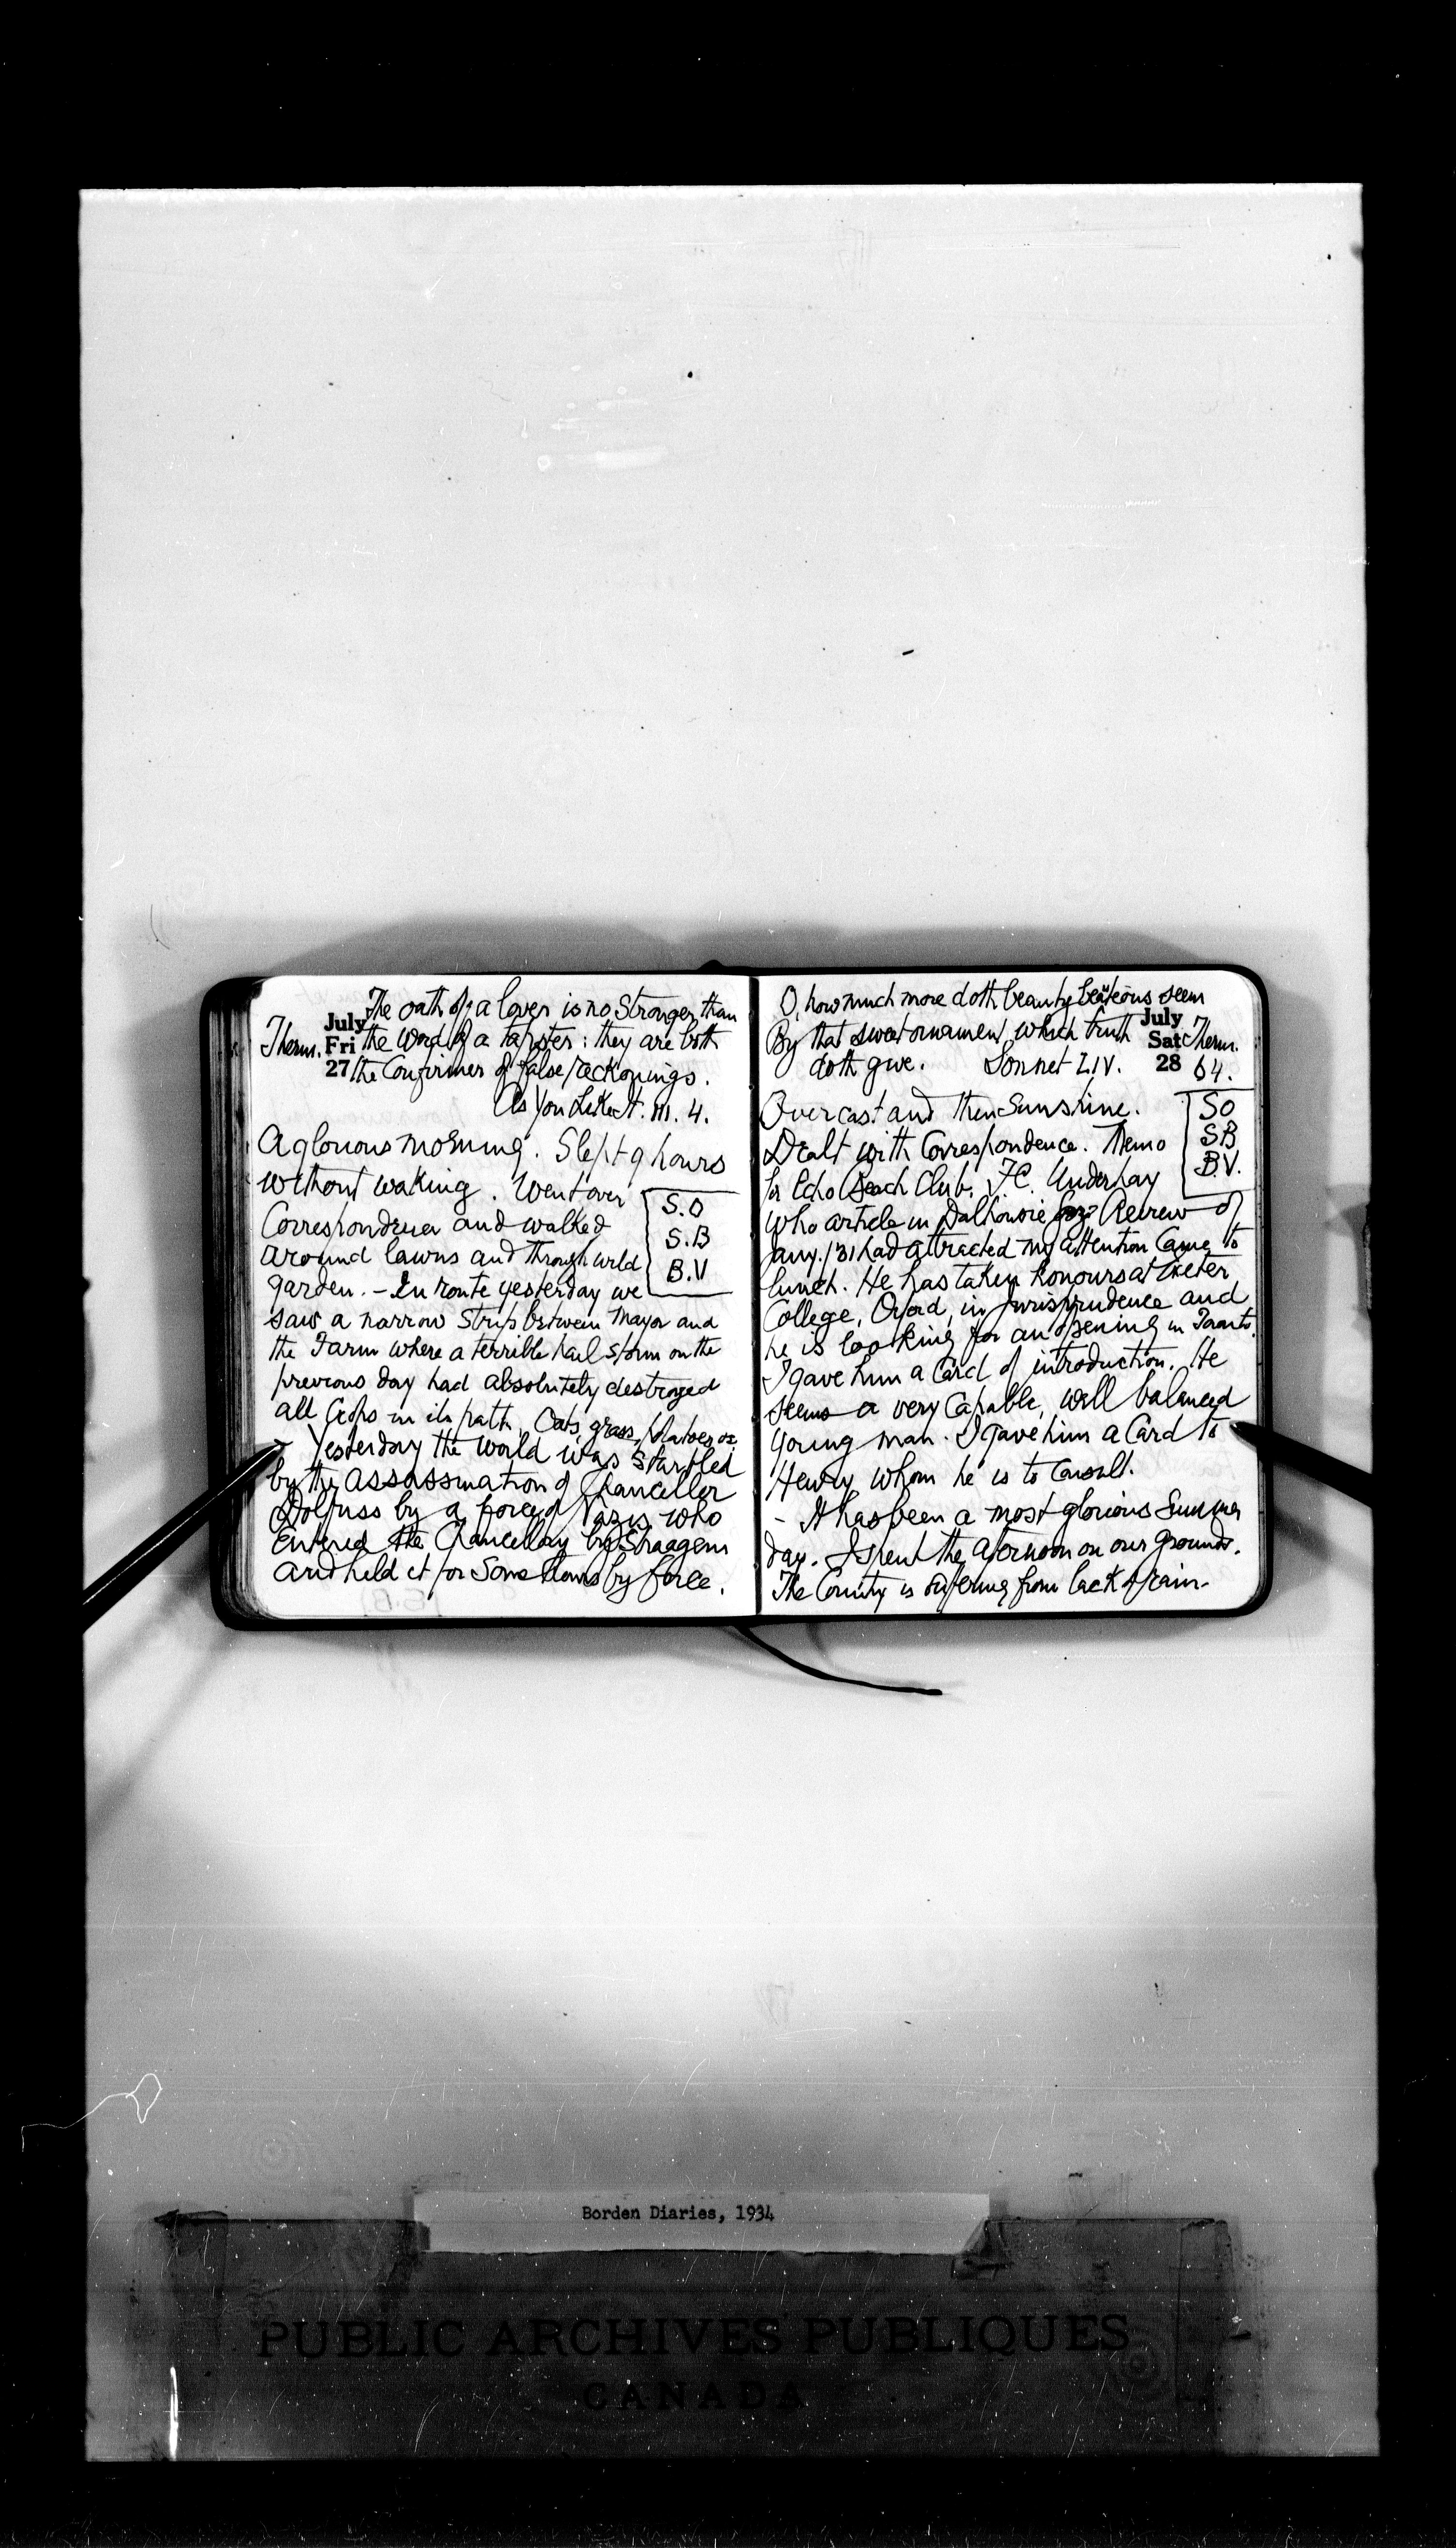 The oath of a lover is no stronger than
July
Therm. Fri the word of a tapster: they are both
27 the Confirmer of false reckonings.
As You Like It. III. 4.
A glorious morning. Slept 9 hours
without waking. Went over
Correspondence and walked
around lawns and through wild
garden. - En route yesterday we
S.O
S.B
B.V
saw a narrow strip between Mayor and
the Farm where a terrible hail storm on the
previous day had absolutely destroyed
all Crops in its path. Oats, grass, potatoes &c.
- Yesterday the world was startled
by the assassination of Chancellor
Dolfuss by a force of Nazis who
entered the Chancellory by Stragem
and held it for some hours by force.
O, how much more doth beauty beauteous seem
By that sweet ornament which truth
doth give. Sonnet LIV.
July
Sat Therm.
28 64.
Overcast and then Sunshine.
Dealt with Correspondence. Memo
for Echo Beach Club. F.C. Underhay
SO
SB
B.V.
who article in Dalhousie Review of
Jany. /31 had attracted my attention Came to
lunch. He has taken honours at Exeter
College, Oxford, in Jurisprudence and
he is looking for an opening in Toronto.
I gave him a Card of introduction. He
seems a very Capable, well balanced
young man. I gave him a Card to
Henry whom he is to Consult.
- It has been a most glorious Summer
day. I spent the afternoon on our grounds.
The Country is suffering from lack of rain.
Borden Diaries, 1934
PUBLIC ARCHIVES PUBLIQUES
CANADA